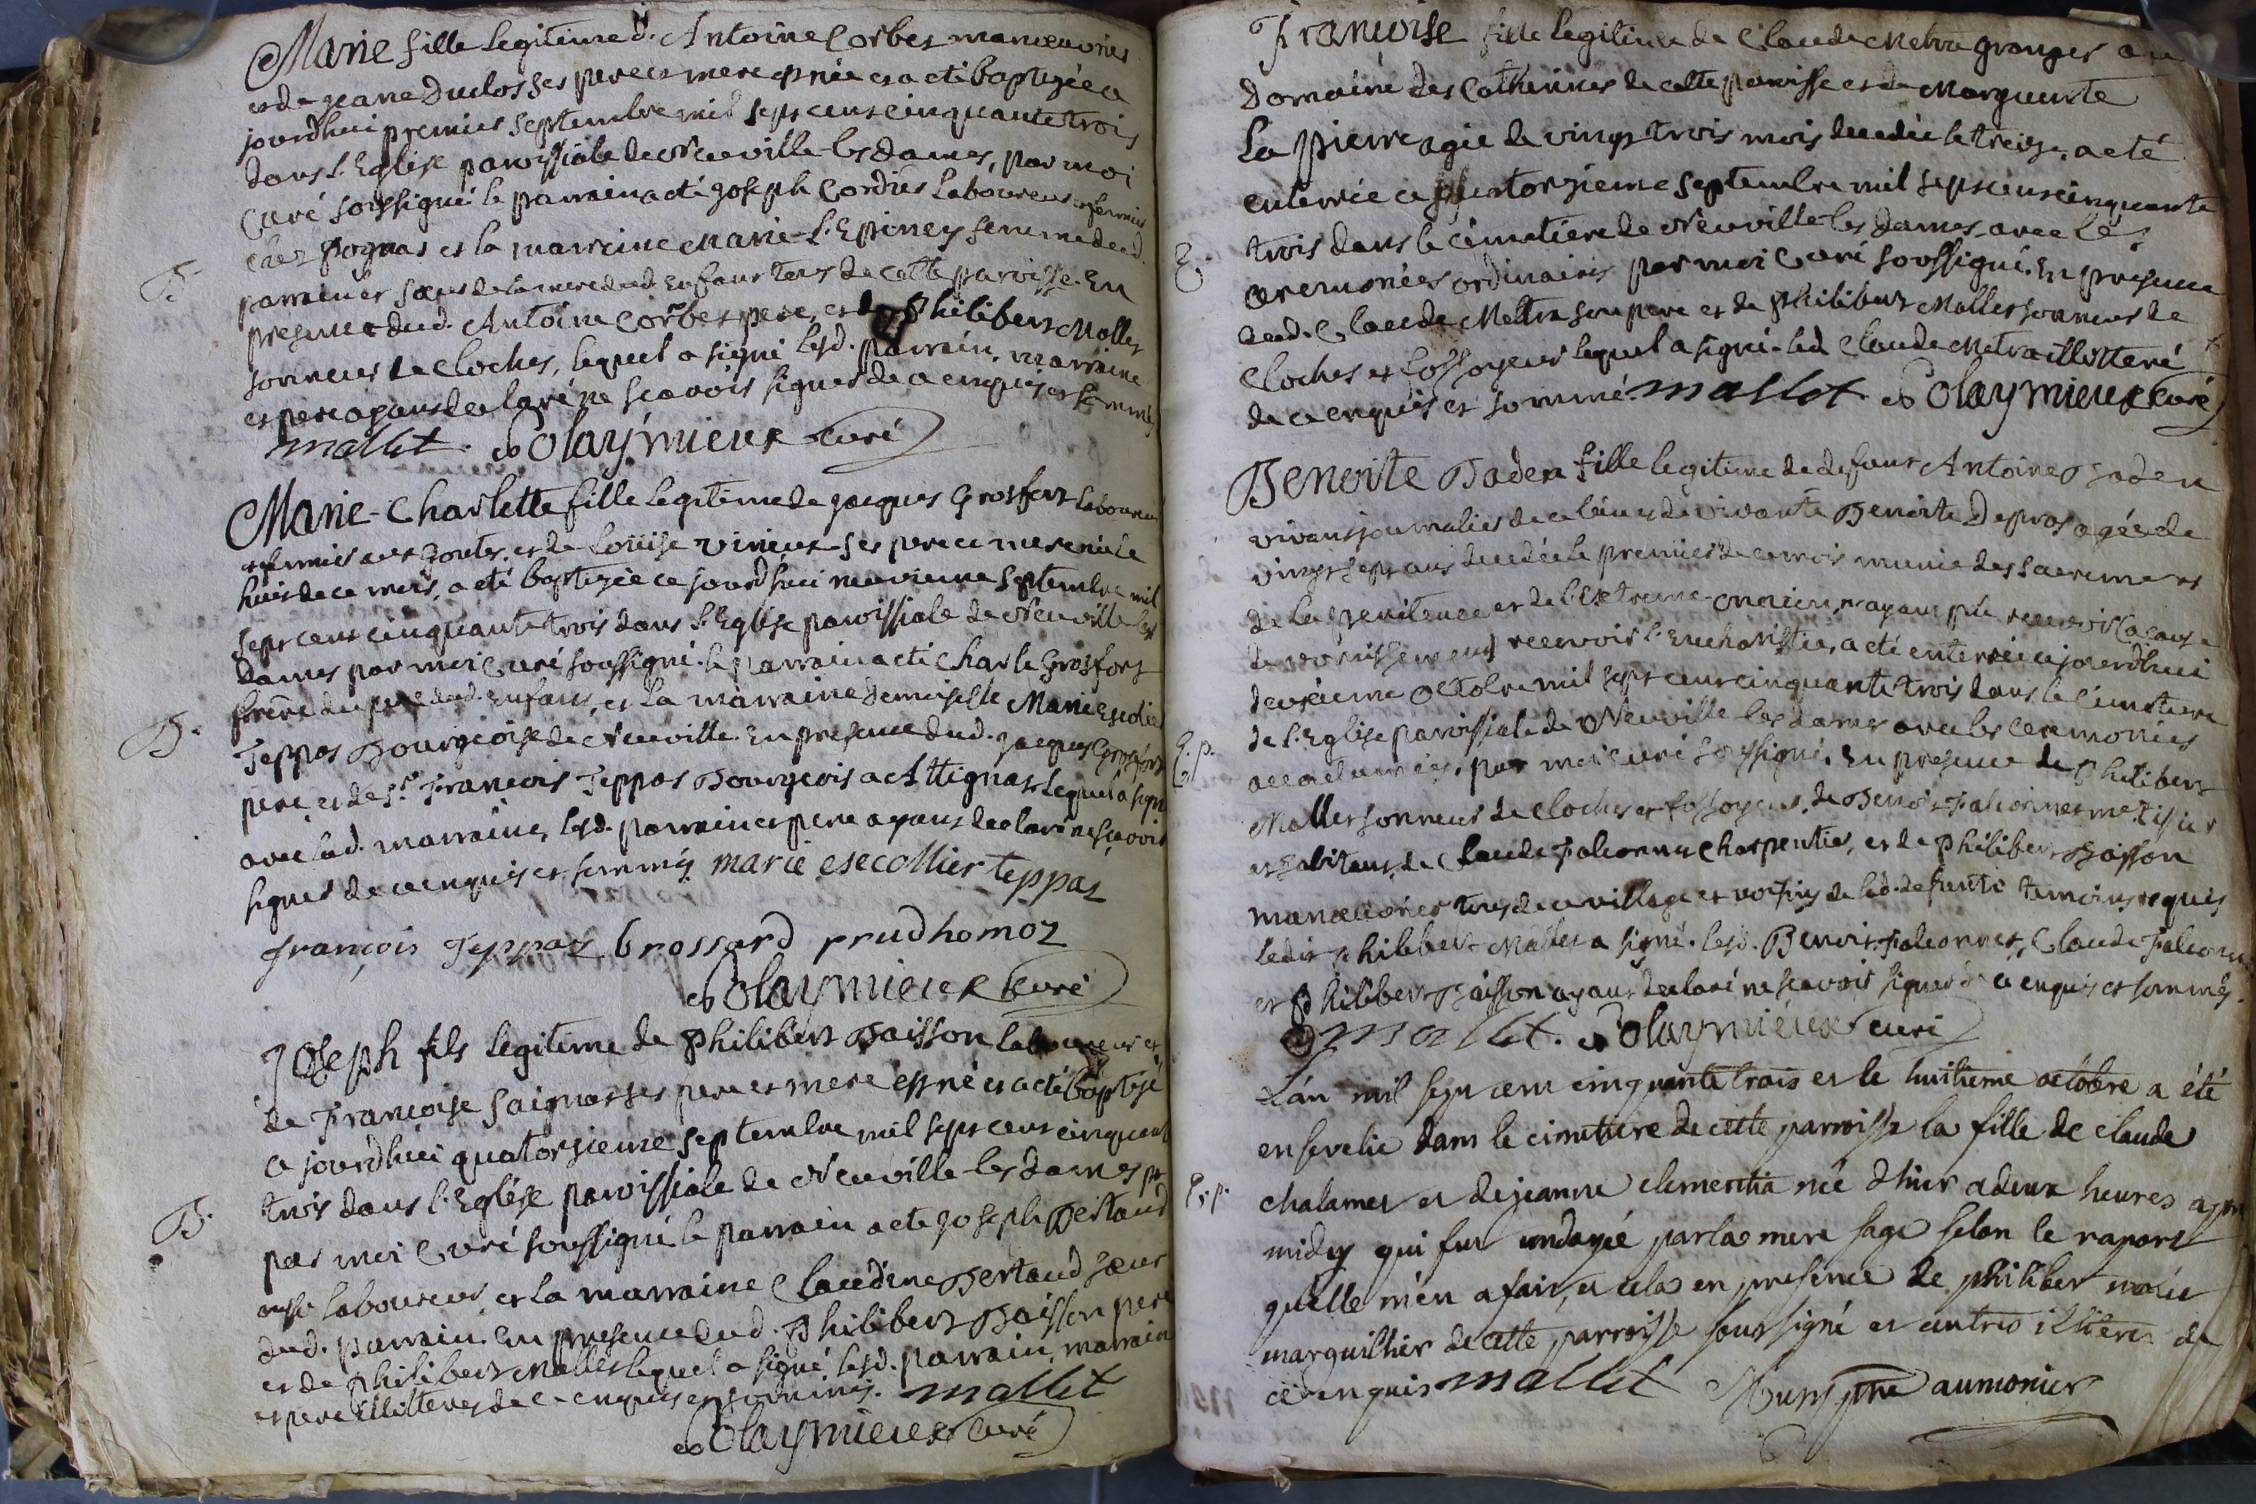 Marie fille legitime d. Antoine Corbet manoeuvrier
et de jeane Duclos ses pere et mere est née et a eté baptizée ce
jourdhui premier septembre mil sept cent cinquante trois
dans l'Eglise paroissiale de Neuville-les dames, par moi
Curé soussigné le parrain a eté joseph Cordier Laboureur et fermier
chez pognat et la marraine Marie-L'Epiney femme dud.
parrain et soeur de la mere dud. Enfant tous de cette paroisse. En
presence dud. Antoine Corbet pere, et de Philibert Mallet
sonneur de Cloches, lequel a signé lesd. parrain, marraine
et pere ayant declaré ne scavoir signer de ce enquis et sommés
mallet. Polaymieux curé
B.
Marie-Charlotte fille legitime de jacques Grosfort Laboureur
et fermier et de Loüise vineux ses pere et mere née le
huit de ce mois, a eté baptizée ce jourdhui neuvieme septembre mil
sept cent cinquante trois dans l'Eglise paroissiale de Neuville les
dames par moi Curé soussigné. le parrain a eté Charle Grosfort
frere du pere dud. enfant, et la marraine demoiselle Marie Escolier
Teppas Bourgeoise de Neuville. En presence dud. jacques Grosfort
pere et de Sr. François Teppas Bourgeois a Attignat lequel a signé
avec lad. marraine, lesd. parrain et pere ayant declaré ne scavoir
signer de ce enquis et sommés marie esecollier teppaz
françois Teppaz brossard prudhomoz
Polaymieux Curé
B.
Joseph fils legitime de Philibert Baisson laboureur et
de Françoise saignat ses pere et mere est né et a eté baptizé
ce jourdhui quatorzieme septembre mil sept cent cinquante
trois dans l'Eglise paroissiale de Neuville-les dames
par moi Curé soussigné le parrain a eté joseph Bertaud
aussi laboureur, et la marraine Claudine Bertaud soeur
dud. parrain. En presence dud. Philibert Baisson pere
et de Philibert Mallet lequel a signé lesd. parrain, marraine
et pere illitteres de ce enquis et sommés. mallet
Polaymieux Curé
B.
Françoise fille legitime de Claude Metra granger au
Domaine des Catherines de cette paroisse et de Marguerite
La pierre agée de vingt trois mois decedée le treize, a eté
enterrée ce quatorzieme septembre mil sept cent cinquante
trois dans le cimetiere de Neuville-les dames, avec les
ceremonies ordinaires par moi Curé soussigné. En presence
dud. Claude Metra son pere et de Philibert Mallet sonneur de
Cloches et fossoyeur lequel a signé. led Claude Metra illitteré
de ce enquis et sommé. mallet Polaymieux curé
E.
Benoite Baden fille legitime de defunt Antoine Baden
vivant journalier de ce lieu et de vivante Benoite Depras agée de
vingt sept ans decedée le premier de ce mois munie des sacremens
de la penitence et de l'extreme-onction, n'ayant pû recevoir (a cause
de vomissement) recevoir l'Eucharistie, a eté enterrée ce jourdhui
deuxieme octobre mil sept cent cinquante trois dans le cimetiere
de l'Eglise paroissiale de Neuville les dames avec les ceremonies
accoutumées, par moi curé soussigné. En presence de Philibert
Mallet sonneur de cloches et fossoyeur, de Benoit Falconnet
et habitant, de Claude Falconnet Charpentier, et de Philibert Baisson
manoeuvrier tous de ce village et voisins de lad. defunte temoins requis
ledit Philibert Mallet a signé. lesd. Benoit Falconnet, Claude Falconnet
et Philibert Baisson ayant declaré ne scavoir signer de ce enquis et sommés.
mallet. Polaymieux curé
E. p.
L'an mil sept cent cinquante trois et le huitieme octobre a été
ensevelie dans le cimetiere de cette parroisse la fille de claude
chalamet et de jeanne clementia née d'hier a deux heures apres
midy qui fut ondoyée par la mere sage selon le raport
qu'elle m'en a fait, et cela en presence de philiber malet
marguillier de cette parroisse soussigné et autres illiterés de
ce enquis mallet ptre aumonier
E. p.